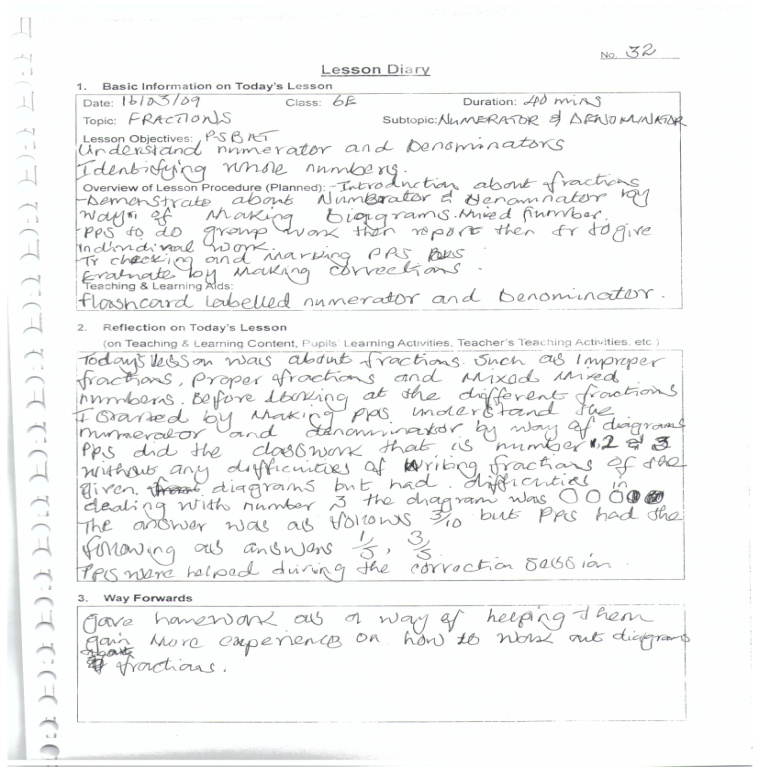 No. 32
Lesson Diary
1. Basic Information on Today's Lesson
Date: 16/03/09 Class: 6E Duration: 40 mins
Topic: FRACTIONS Subtopic: NUMERATOR & DENOMINATOR
Lesson Objectives: PSBAT
Understand numerator and Denominators
Identifying whole numbers.
Overview of Lesson Procedure (Planned): -Introduction about fractions
-Demonstrate about Numerator & Denominator by
way of Making Diagrams. Mixed number.
-PPS to do group work then report then Tr to give
Individual work.
Tr checking and marking PPS bks
Evaluate by making corrections.
Teaching & Learning Aids:
flashcard labelled numerator and Denominator.
2. Reflection on Today's Lesson
(on Teaching & Learning Content, Pupils' Learning Activities, Teacher's Teaching Activities, etc.)
Today's lesson was about fractions. Such as Improper
fractions, Proper fractions and Mixed Mixed
numbers. Before looking at the different fractions
I started by making pps understand the
numerator and denominator by way of diagrams
PPS did the classwork that is number 1, 2 & 3
without any difficulties of Writing fractions of the
given diagrams but had difficulties in
dealing with number 3 the diagram was
The answer was as follows 3/10 but PPS had the
following as answers 1/5, 3/5
PPS were helped during the correction session.
3. Way Forwards
Gave homework as a way of helping them
gain More experience on how to work out diagrams
fractions.